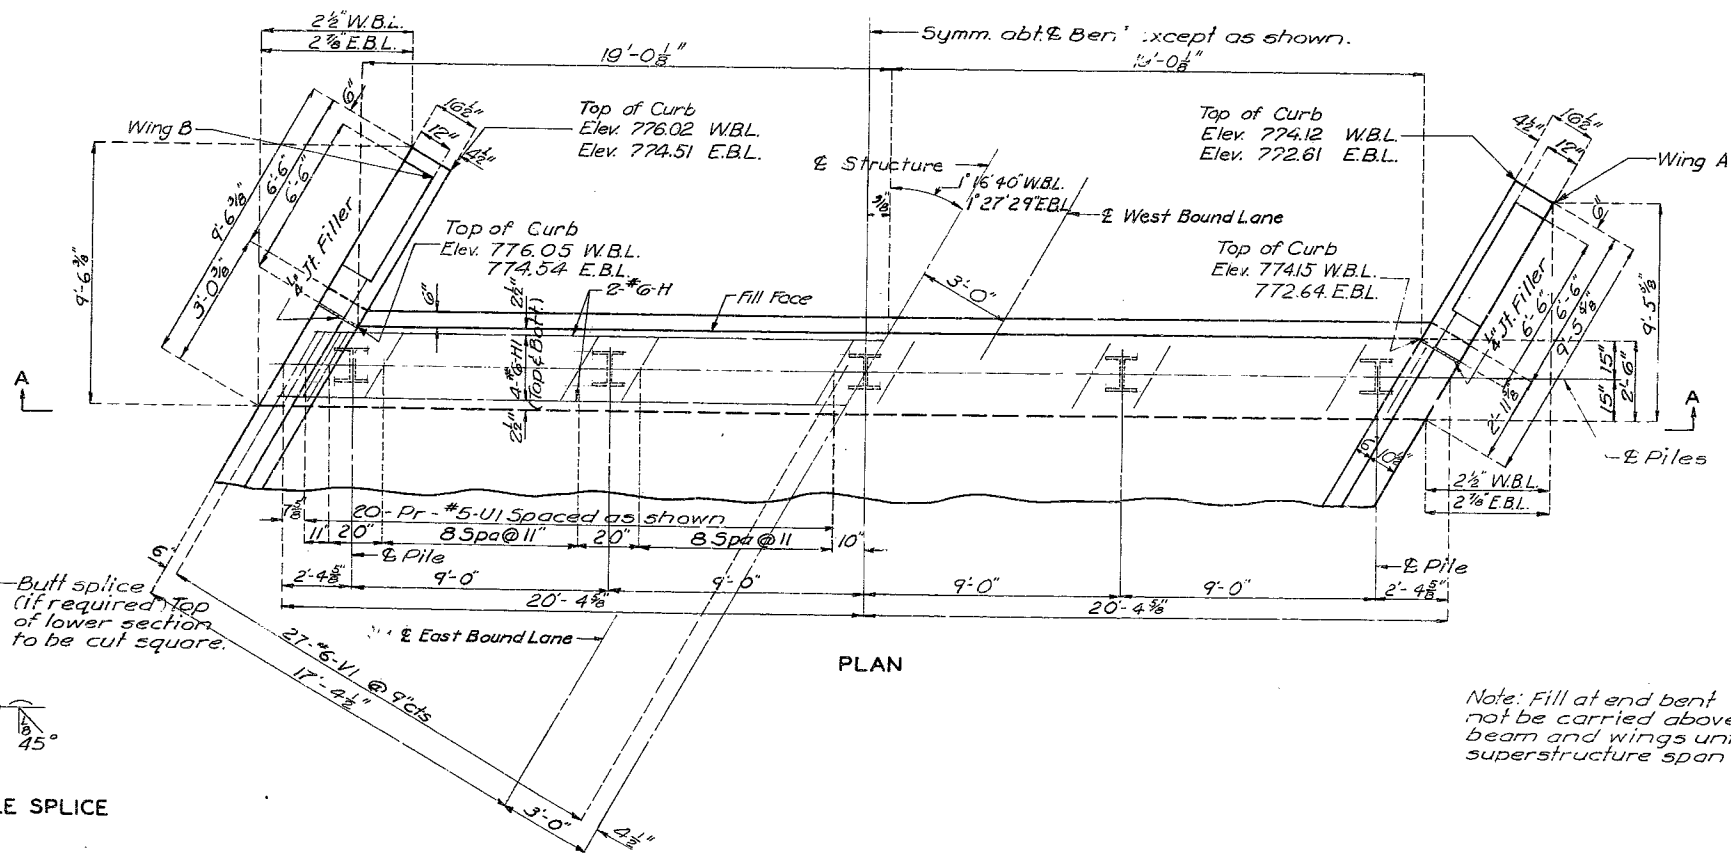 2½" W.B.L.
2⅞" E.B.L.
19'-0⅛"
Symm. abt. ℄ Except as shown.
6"
16½"
12"
4½"
Wing B
Top of Curb
Elev. 776.02 W.B.L.
Elev. 774.51 E.B.L.
Top of Curb
Elev. 774.12 W.B.L.
Elev. 772.61 E.B.L.
4½"
16½"
12"
Wing A
℄ Structure
1°16'40" W.B.L.
1°27'29" E.B.L.
℄ West Bound Lane
6'-6"
6'-6"
9'-6⅜"
9'-6⅜"
3'-0⅜"
¼" Jt. Filler
Top of Curb
Elev. 776.05 W.B.L.
774.54 E.B.L.
6"
2-#6-H
Fill Face
3'-0"
Top of Curb
Elev. 774.15 W.B.L.
772.64 E.B.L.
6"
¼" Jt. Filler
6'-6"
6'-6"
9'-5⅝"
9'-5⅝"
2'-11⅝"
15"
15"
2'-6"
2½"
4-#6-H1
(Top & Bott.)
2½"
A
A
6"
10½"
℄ Piles
2½" W.B.L.
2⅞" E.B.L.
7⅞"
20-Pr-#5-U1 Spaced as shown
11"
20"
8 Spa @ 11"
20"
8 Spa @ 11
10"
℄ Pile
℄ Pile
6"
2'-4⅝"
9'-0"
9'-0"
9'-0"
9'-0"
2'-4⅝"
20'-4⅝"
20'-4⅝"
Butt splice
(if required) Top
of lower section
to be cut square.
℄ East Bound Lane
27-#6-V1 @ 9"cts
17'-4½"
3'-0"
4½"
PLAN
⅛
45°
SPLICE
Note: Fill at end bent
not be carried above
beam and wings
superstructure span